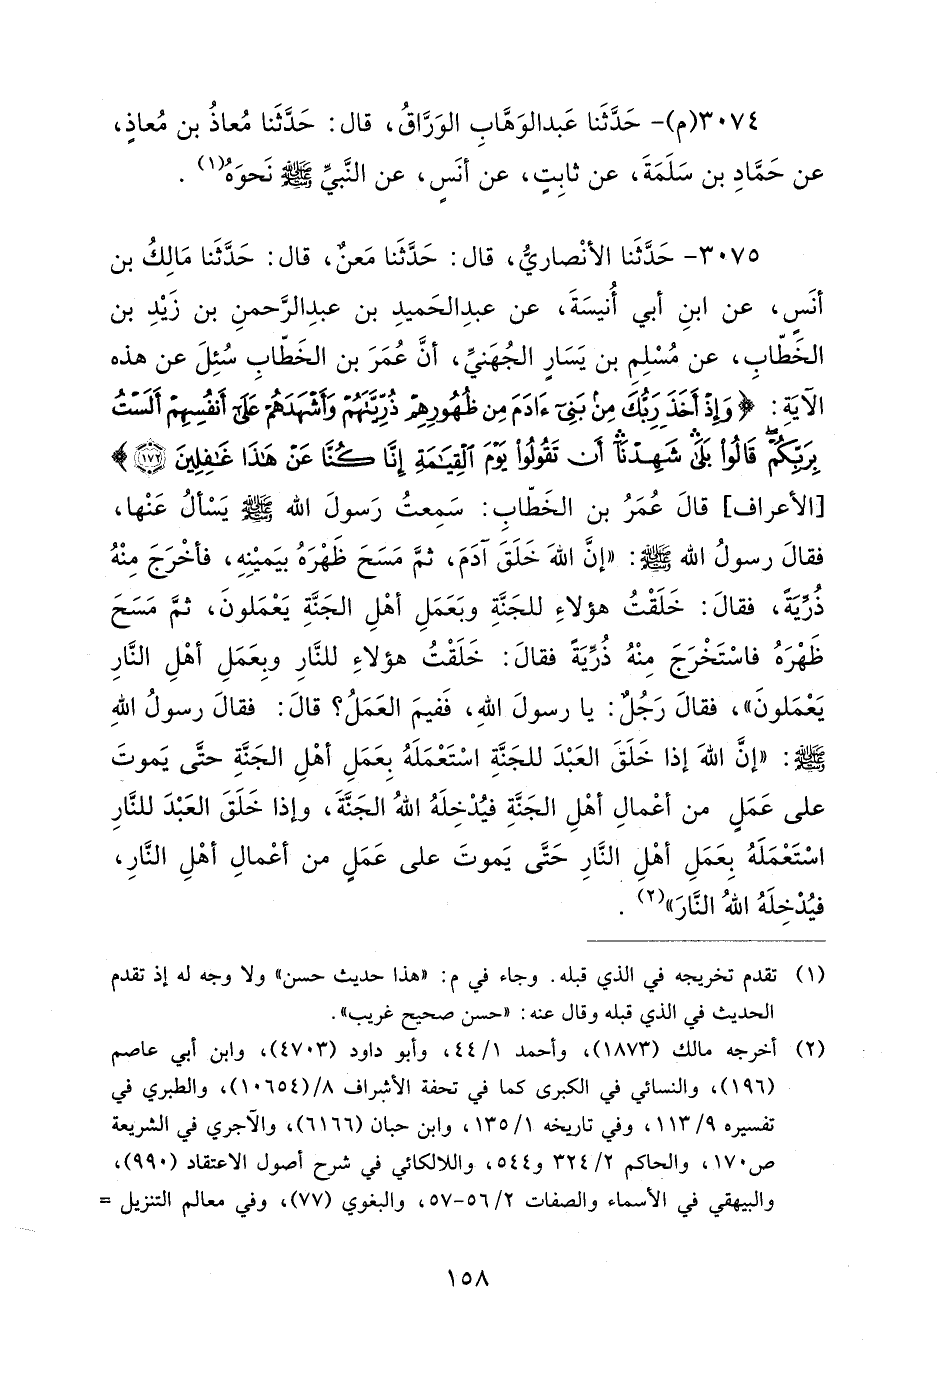 ٣٠٧٤(م)- حَدَّثَنا عَبدالوَهَّابِ الوَرَّاقُ، قال: حَدَّثَنا مُعاذُ بن مُعاذٍ،
عن حَمَّادِ بن سَلَمَةَ، عن ثابِتٍ، عن أنَسٍ، عن النَّبيِّ ﷺ نَحوَهُ(١) .
٣٠٧٥- حَدَّثَنا الأنْصاريُّ، قال: حَدَّثَنا مَعنٌ، قال: حَدَّثَنا مَالِكُ بن
أنَسٍ، عن ابنِ أبي أُنيسَةَ، عن عبدالحَميدِ بن عبدالرَّحمنِ بن زَيْدِ بن
الخَطّابِ، عن مُسْلِمِ بن يَسَارٍ الجُهَنيِّ، أنَّ عُمَرَ بن الخَطّابِ سُئِلَ عن هذه
الآيَةِ: ﴿ وَإِذْ أَخَذَ رَبُّكَ مِنْ بَنِىٓ ءَادَمَ مِن ظُهُورِهِمْ ذُرِّيَّتَهُمْ وَأَشْهَدَهُمْ عَلَىٰٓ أَنفُسِهِمْ أَلَسْتُ
بِرَبِّكُمْ ۖ قَالُوا۟ بَلَىٰ ۛ شَهِدْنَآ ۛ أَن تَقُولُوا۟ يَوْمَ ٱلْقِيَـٰمَةِ إِنَّا كُنَّا عَنْ هَـٰذَا غَـٰفِلِينَ ١٧٢ ﴾
[الأعراف] قالَ عُمَرُ بن الخَطّابِ: سَمِعتُ رَسولَ الله ﷺ يَسْألُ عَنْها،
فقالَ رسولُ الله ﷺ: «إنَّ اللهَ خَلَقَ آدَمَ، ثمَّ مَسَحَ ظَهْرَهُ بيَمينِهِ، فأخْرَجَ مِنْهُ
ذُرِّيَةً، فقالَ: خَلَقْتُ هؤلاءِ للجَنَّةِ وبَعَمَلِ أهْلِ الجَنَّةِ يَعْمَلونَ، ثمَّ مَسَحَ
ظَهْرَهُ فاسْتَخْرَجَ مِنْهُ ذُرِّيَةً فقالَ: خَلَقْتُ هؤلاءِ للنَّارِ وبِعَمَلِ أهْلِ النَّارِ
يَعْمَلونَ»، فقالَ رَجُلٌ: يا رسولَ اللهِ، فَفيمَ العَمَلُ؟ قالَ: فقالَ رسولُ اللهِ
ﷺ: «إنَّ اللهَ إذا خَلَقَ العَبْدَ للجَنَّةِ اسْتَعْمَلَهُ بِعَمَلِ أهْلِ الجَنَّةِ حتَّى يَموتَ
على عَمَلٍ من أعْمالِ أهْلِ الجَنَّةِ فيُدْخِلَهُ اللهُ الجَنَّةَ، وإذا خَلَقَ العَبْدَ للنَّارِ
اسْتَعْمَلَهُ بِعَمَلِ أهْلِ النَّارِ حَتَّى يَموتَ على عَمَلٍ من أعْمالِ أهْلِ النَّارِ،
فيُدْخِلَهُ اللهُ النَّارَ»(٢) .
(١) تقدم تخريجه في الذي قبله. وجاء في م: «هذا حديث حسن» ولا وجه له إذ تقدم
الحديث في الذي قبله وقال عنه: «حسن صحيح غريب».
(٢) أخرجه مالك (١٨٧٣)، وأحمد ٤٤/١، وأبو داود (٤٧٠٣)، وابن أبي عاصم
(١٩٦)، والنسائي في الكبرى كما في تحفة الأشراف ٨/(١٠٦٥٤)، والطبري في
تفسيره ١١٣/٩، وفي تاريخه ١٣٥/١، وابن حبان (٦١٦٦)، والآجري في الشريعة
ص١٧٠، والحاكم ٣٢٤/٢ و٥٤٤، واللالكائي في شرح أصول الاعتقاد (٩٩٠)،
والبيهقي في الأسماء والصفات ٥٦/٢-٥٧، والبغوي (٧٧)، وفي معالم التنزيل =
١٥٨